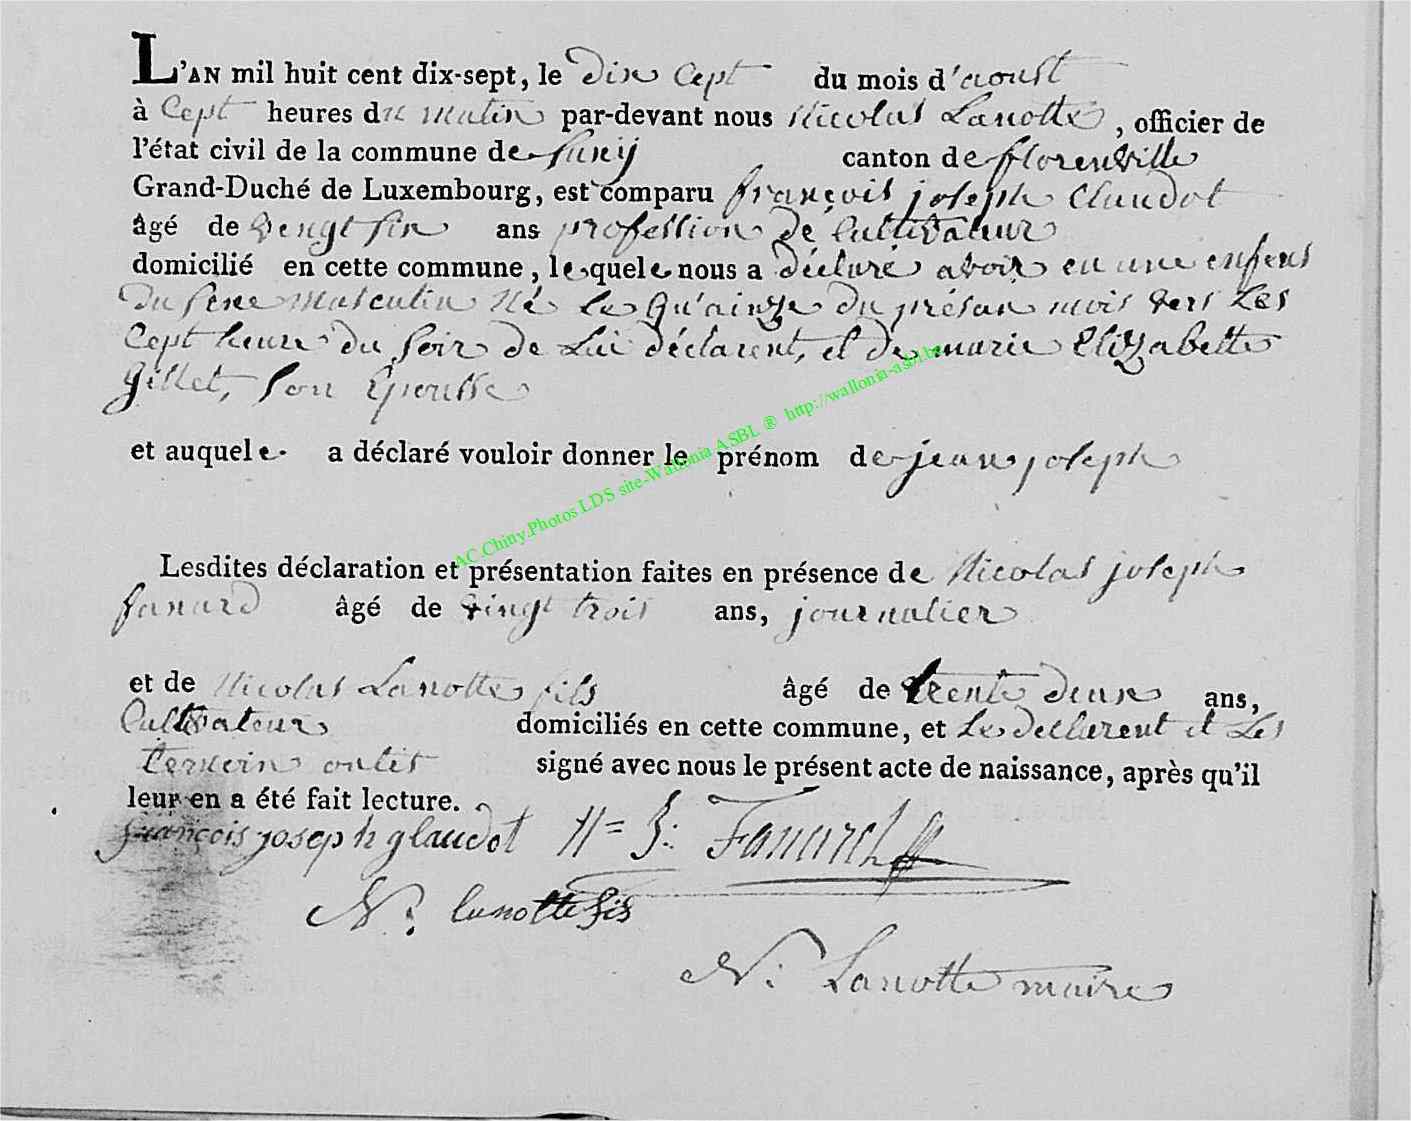 L'AN mil huit cent dix-sept, le dix Cept du mois d'aoust
à Cept heures du matin par-devant nous Nicolas Lanotte, officier de
l'état civil de la commune de Suxÿ canton de florenville
Grand-Duché de Luxembourg, est comparu françois joseph Claudot
âgé de Vengt six ans profession de Cultivateur
domicilié en cette commune, lequele nous a déclaré avoir eu une enfens
Du sexe masculin Né Le Qu'ainze du présan mois vers Les
Cept heure du soir de Lui déclarent, et de marie Elizabette
Gillet, son Epousse
et auquele a déclaré vouloir donner le prénom de jean joseph
AC.Chiny.Photos LDS site-Wallonia ASBL ® http://wallonia-asbl.be
Lesdites déclaration et présentation faites en présence de Nicolas joseph
fanard âgé de vingt trois ans, journalier
et de Nicolas Lanotte fils âgé de trente deux ans,
Cultivateur domiciliés en cette commune, et Le declarent et Les
temoin ontis signé avec nous le présent acte de naissance, après qu'il
leur en a été fait lecture.
françois joseph glaudot N= J: Fanard
N: lanotte fis
N: Lanotte maire